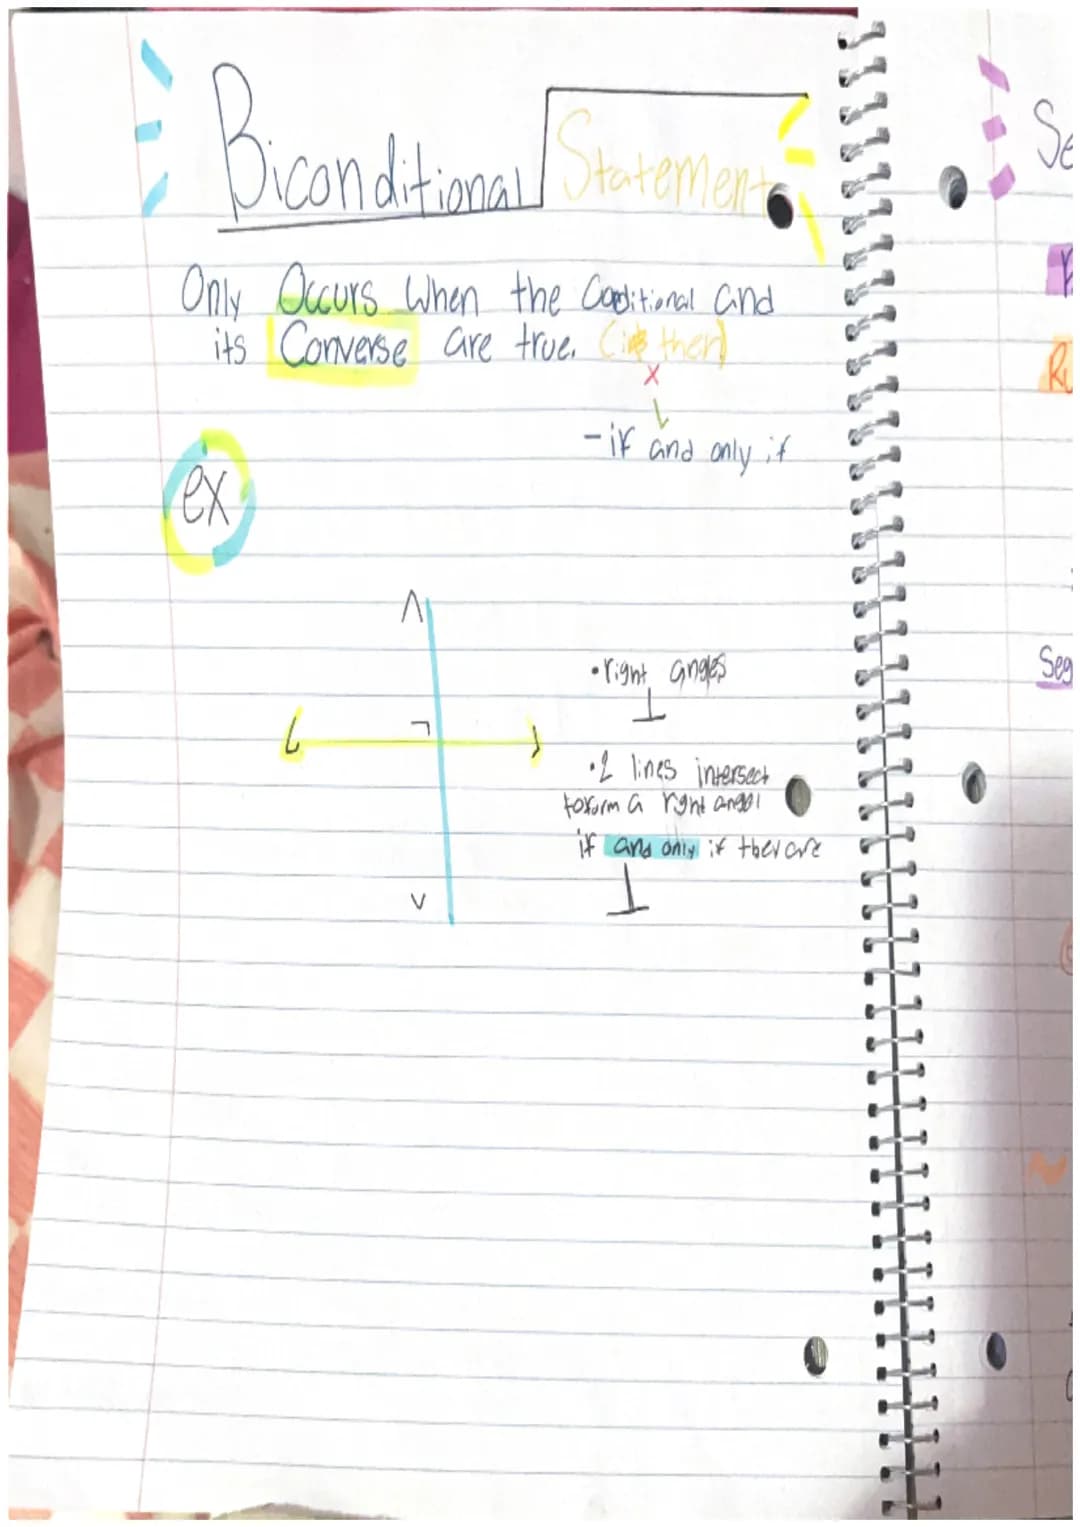 Biconditional Statement
Only Occurs when the Conditional and
its Converse are true. (if then)
x
- if and only if
ex
• right angles
⊥
• 2 lines intersect
to form a right angel
if and only if they are
⊥
Se
Ru
Seg